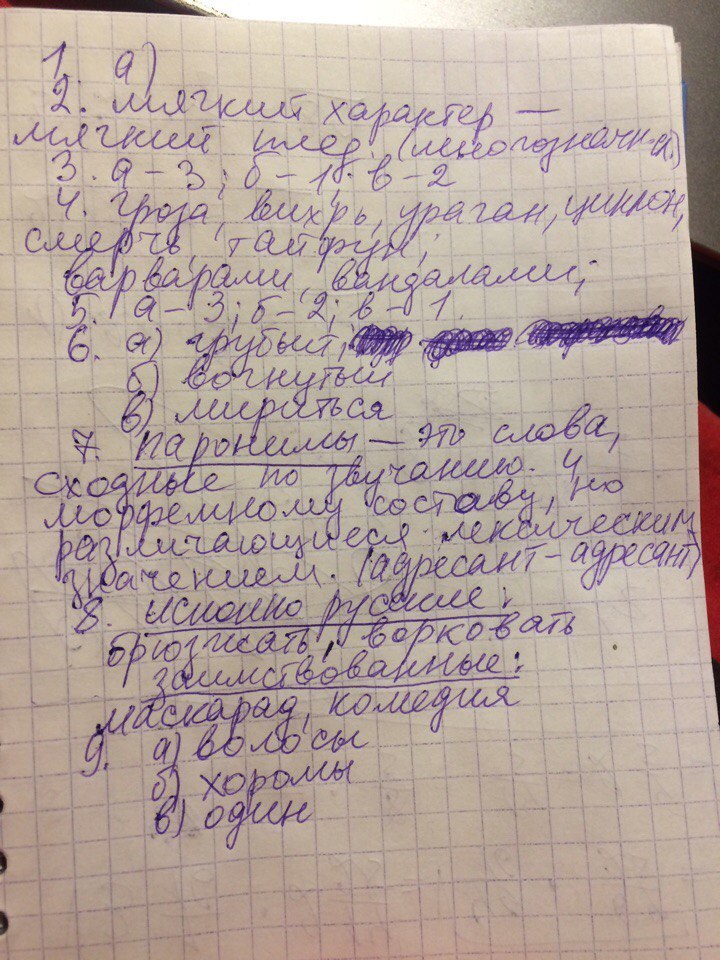 1. а)
2. мягкий характер —
мягкий плед. (многозначн-сл.)
3. а – 3; б – 1; в – 2
4. гроза, вихрь, ураган, циклон,
смерчь, тайфун;
варварами, вандалами;
5. а – 3; б – 2; в – 1.
6. а) грубый,
б) вогнутый
в) мириться
7. паронимы – это слова,
сходные по звучанию и
морфемному составу, но
различающиеся лексическим
значением. (адресант – адресант)
8. исконно русские:
брюзжать, ворковать
заимствованные:
маскарад, комедия
9. а) волосы
б) хоромы
в) один